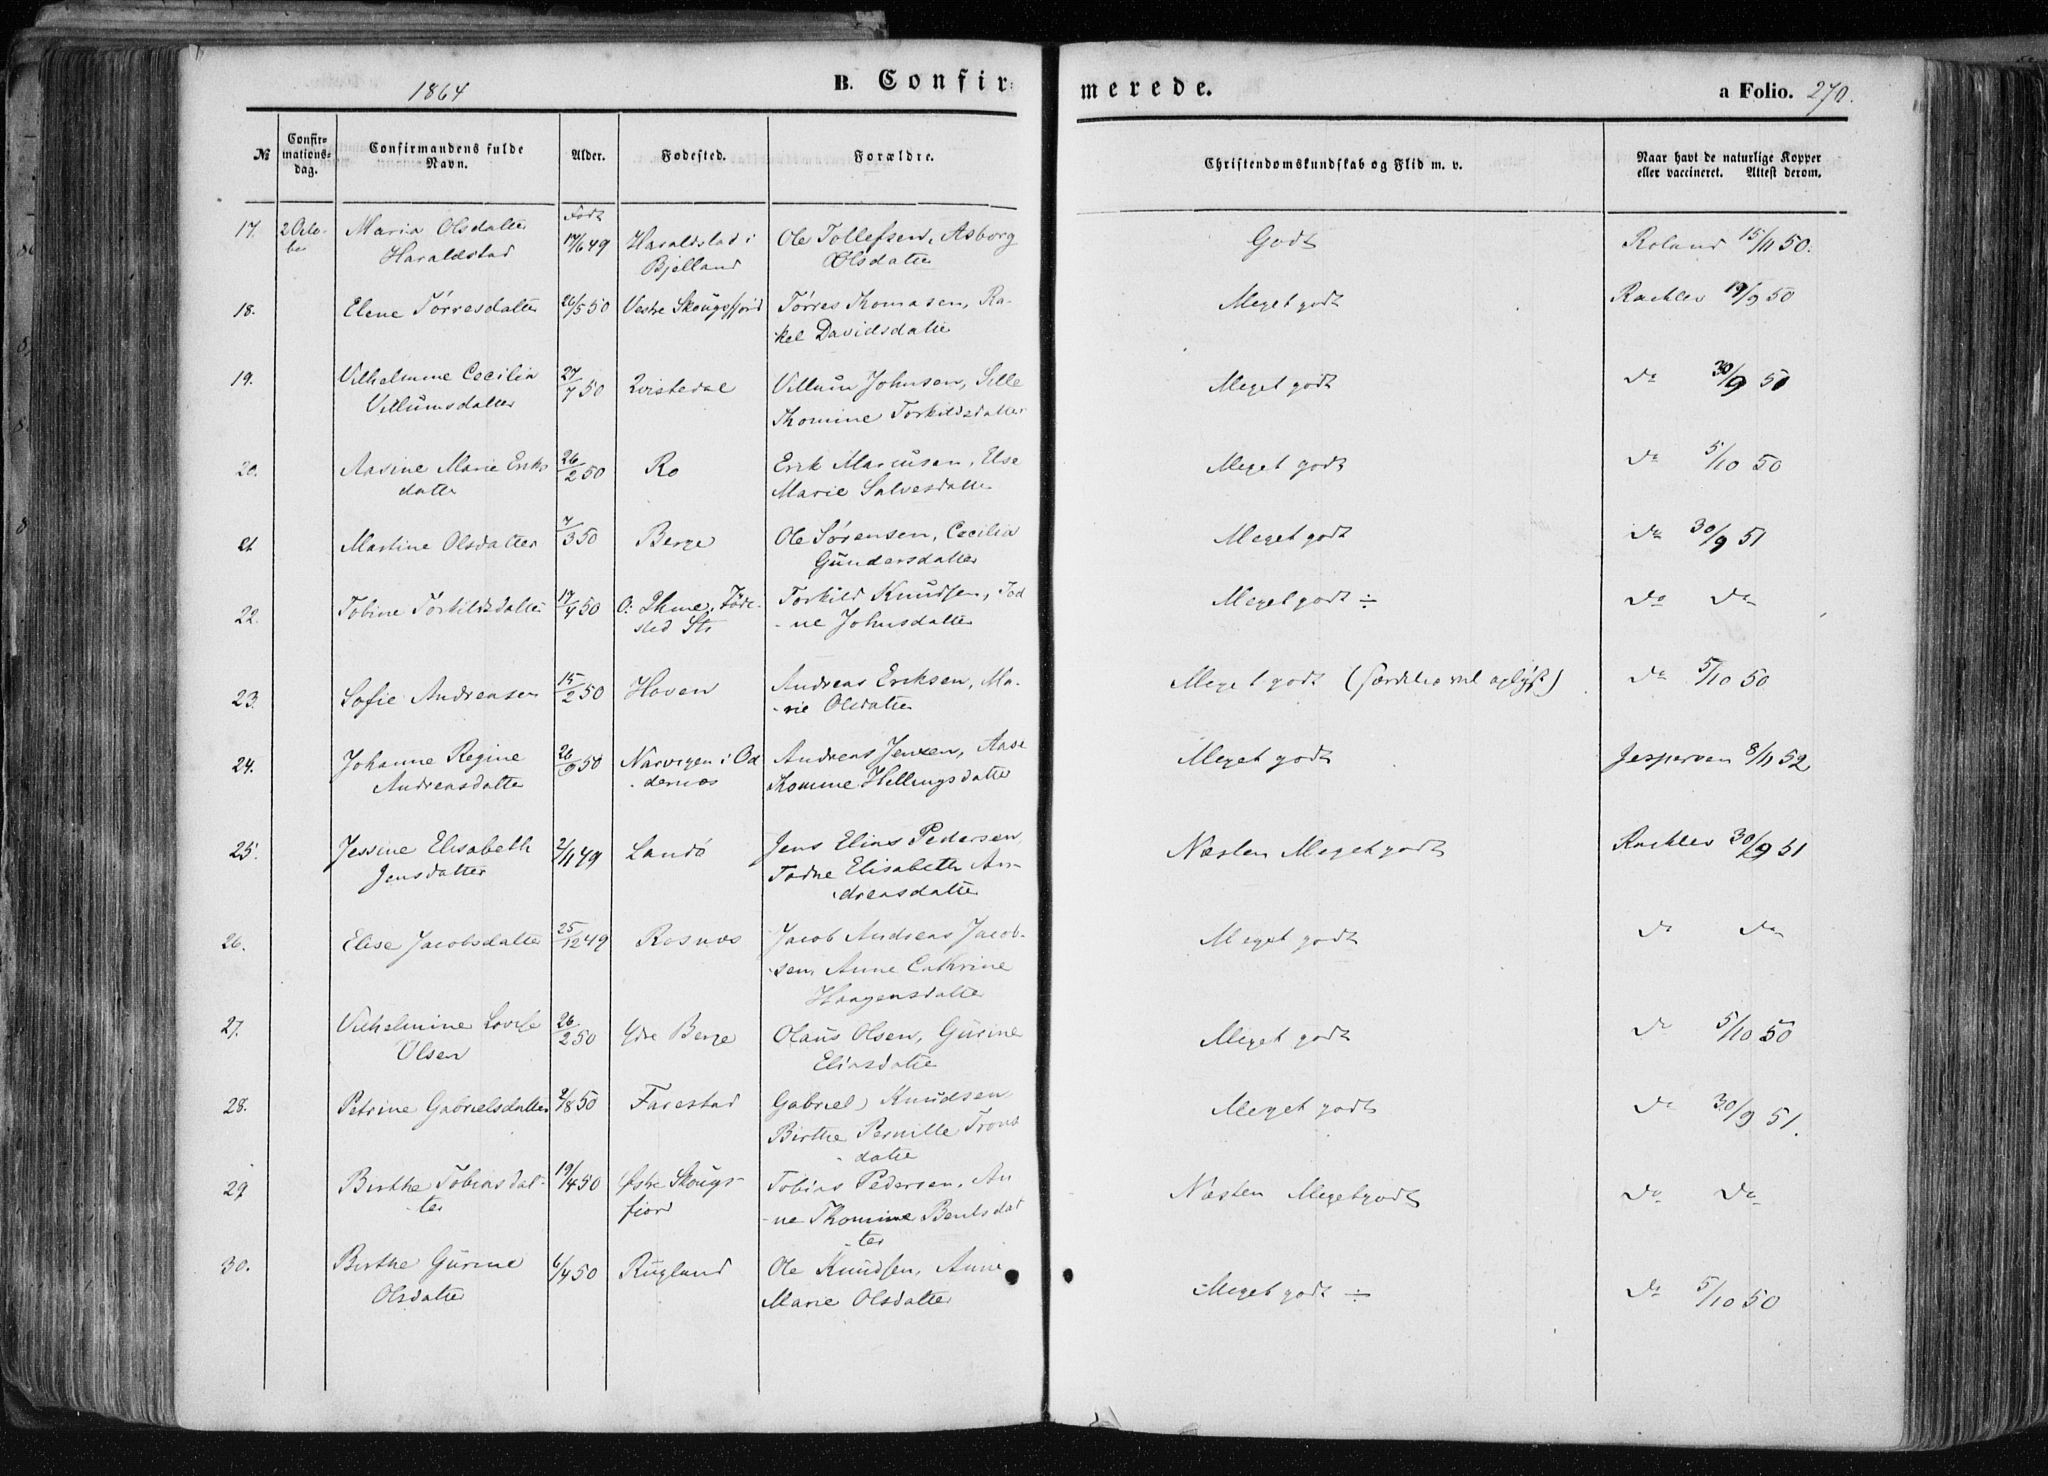 1864 B. Confirmerede. a Folio. 270.
№ Confirmations-dag. Confirmandens fulde Navn. Alder. Fødested. Forældre. Christendomskundskab og Flid m. v. Naar havt de naturlige Kopper eller vaccineret. Attest derom.
Født
17. 2 Octo- Maria Olsdatter 17/6 49 Haraldstad i Ole Tollefsen, Asborg Godt Roland 15/11 50.
ber Haraldstad Bjelland Olsdatter
18. Elene Tørresdatter 26/5 50 Vestre Skougsfjord Tørres Thomasen, Ra- Meget godt Rachlev 19/9 50
kel Davidsdatter
19. Vilhelmine Cecilia 27/7 50 Qvistedal Villum Johnsen, Sille Meget godt do 30/9 50
Villumsdatter Thomine Torkildsdatter
20. Aasine Marie Eriks 26/2 50 Ro Erik Marcusen, Else Meget godt do 5/10 50
datter Marie Salvesdatter
21. Martine Olsdatter 7/3 50 Berge Ole Sørensen, Cecilia Meget godt do 30/9 51
Gundersdatter
22. Tobine Torkildsdatter 17/4 50 O: Øhme, Føde- Torkild Knudsen, Tod Meget godt ÷ do do
sted Str -ne Johnsdatter
23. Sofie Andreasen 15/2 50 Hoven Andreas Eriksen, Ma- Meget godt ( vel oplyst) do 5/10 50
-rie Olsdatter
24. Johanne Regine 26/9 50 Narvigen i Od Andreas Jensen, Aase Meget godt Jespersen 8/11 52
Andreasdatter -dernæs Thomine Hellingsdatter
25. Jessine Elisabeth 2/11 49 Landø Jens Elias Pedersen, Næsten Meget godt Rachlev 30/9 51
Jensdatter Todne Elisabeth An-
dreasdatter
26. Elise Jacobsdatter 25/12 49 Rosnæs Jacob Andreas Jacob- Meget godt do do
-sen, Anne Cathrine
Haagensdatter
27. Vilhelmine Lovise 26/2 50 Ydre Berge Olaus Olsen, Gurine Meget godt do 5/10 50
Olsen Eliasdatter
28. Petrine Gabrielsdatter 2/8 50 Farestad Gabriel Knudsen Meget godt do 30/9 51.
Birthe Pernille Trons
-datter
29 Birthe Tobiasdat- 19/4 50 Østre Skougs- Tobias Pedersen, An Næsten Meget godt do do
-ter fiord -ne Thomine Bentsdat
-ter
30. Birthe Gurine 6/4 50 Rugland Ole Knudsen, Anne Meget godt ÷ do 5/10 50
Olsdatter Marie Olsdatter